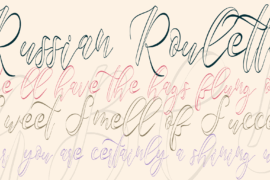 Russian Roulett
e'll have the bags flung o
Sweet Smell of Succe
you are certainly a shining